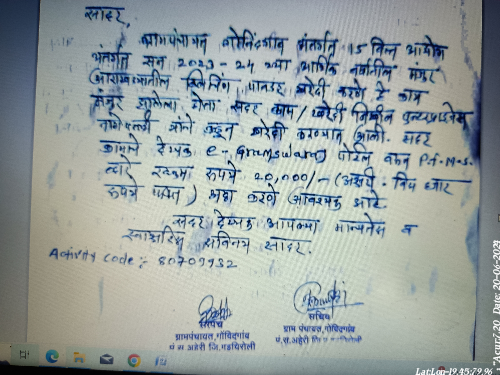 सादर,
ग्रामपंचायत गोविंदगाव अंतर्गत 15 वित्त आयोग
अंतर्गत सन 2023-24 च्या आर्थिक वर्षातील मंजूर
आराखड्यातील ब्लिचिंग पावडर खरेदी करणे हे काम
मंजूर झालेला होता सदर काम / खरेदी
यांचे कडून खरेदी करण्यात आली. सदर
कामाचे देयक e-Gramswaraj पोर्टल वरून P.F.M.S.
द्वारे रक्कम रुपये 20,000/- (अक्षरी - विस हजार
रुपये फक्त) अदा करणे आवश्यक आहे.
सदर देयक आपल्या मान्यतेस व
स्वाक्षरीस सविनय सादर.
Activity code :- 80709932
सरपंच
ग्रामपंचायत,गोविंदगांव
पं.स.अहेरी जि.गडचिरोली
सचिव
ग्राम पंचायत,गोविंदगांव
पं.स.अहेरी जि.गडचिरोली
Lat:Lon-19.45:79.96